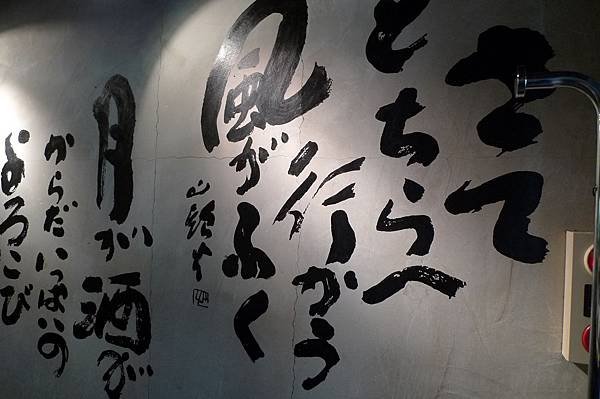 さて
どちらへ
行かう
風がふく
山頭火
月が酒が
からだいっぱいの
よろこび